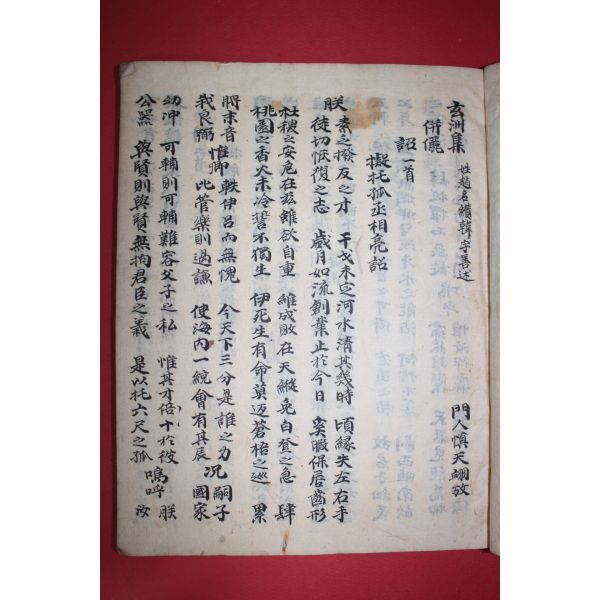 玄洲集 姓趙名纘韓字善述 門人愼天翊放
倂儷
詔一首
擬托孤丞相亮詔
朕素乏撥反之才 干戈未定河水清其幾時 頃緣失左右手
徒切恢復之志 歲月如流創業止於今日 奚暇保唇齒形
社稷之安危在玆雖欲自重 維成敗在天縱免白登之急 肆
桃園之香火未冷誓不獨生 伊死生有命莫返蒼梧之巡 累
將末音惟卿軼伊呂而無愧 今天下三分是誰之力 况嗣子
我良弼 比管樂則過謙 使海內一統會有其辰 國家
幼冲 可輔則可輔難容父子之私 惟其才倍十於彼 朕
公器 與賢則與賢無拘君臣之義 是以托六尺之孤 嗚呼 汝